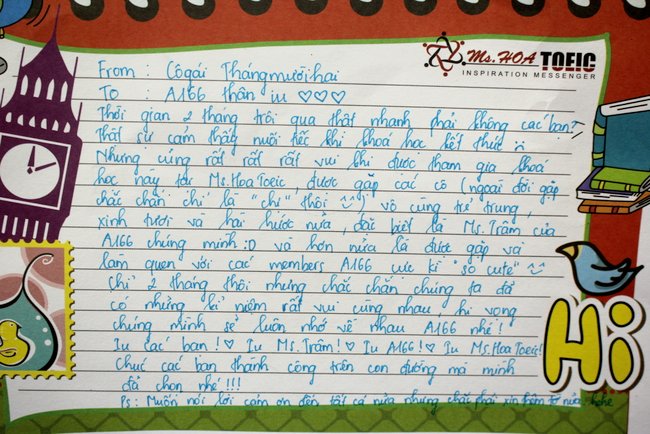 Ms. HOA TOEIC
INSPIRATION MESSENGER
From : Cô gái Tháng mười hai
To : A166 thân iu ♡♡♡
Thời gian 2 tháng trôi qua thật nhanh phải không các bạn?
Thật sự cảm thấy nuối tiếc khi khoá học kết thúc
Nhưng cũng rất rất rất vui khi được tham gia khoá
học này tại Ms.Hoa Toeic, được gặp các cô (ngoài đời gặp
chắc chắn chỉ là "chị" thôi ) vô cùng trẻ trung,
xinh tươi và hài hước nữa, đặc biệt là Ms. Trâm của
A166 chúng mình :D và hơn nữa là được gặp và
làm quen với các members A166 cực kì "so cute"
Chỉ 2 tháng thôi nhưng chắc chắn chúng ta đã
có những kỉ niệm rất vui cùng nhau, hi vọng
chúng mình sẽ luôn nhớ về nhau A166 nhé!
Iu các bạn!♡ Iu Ms.Trâm!♡ Iu A166!♡ Iu Ms.Hoa Toeic!
Chúc các bạn thành công trên con đường mà mình
đã chọn nhé!!!
Ps: Muốn nói lời cảm ơn đến tất cả nữa nhưng chắc phải xin thêm tờ nữa hehe
Hi